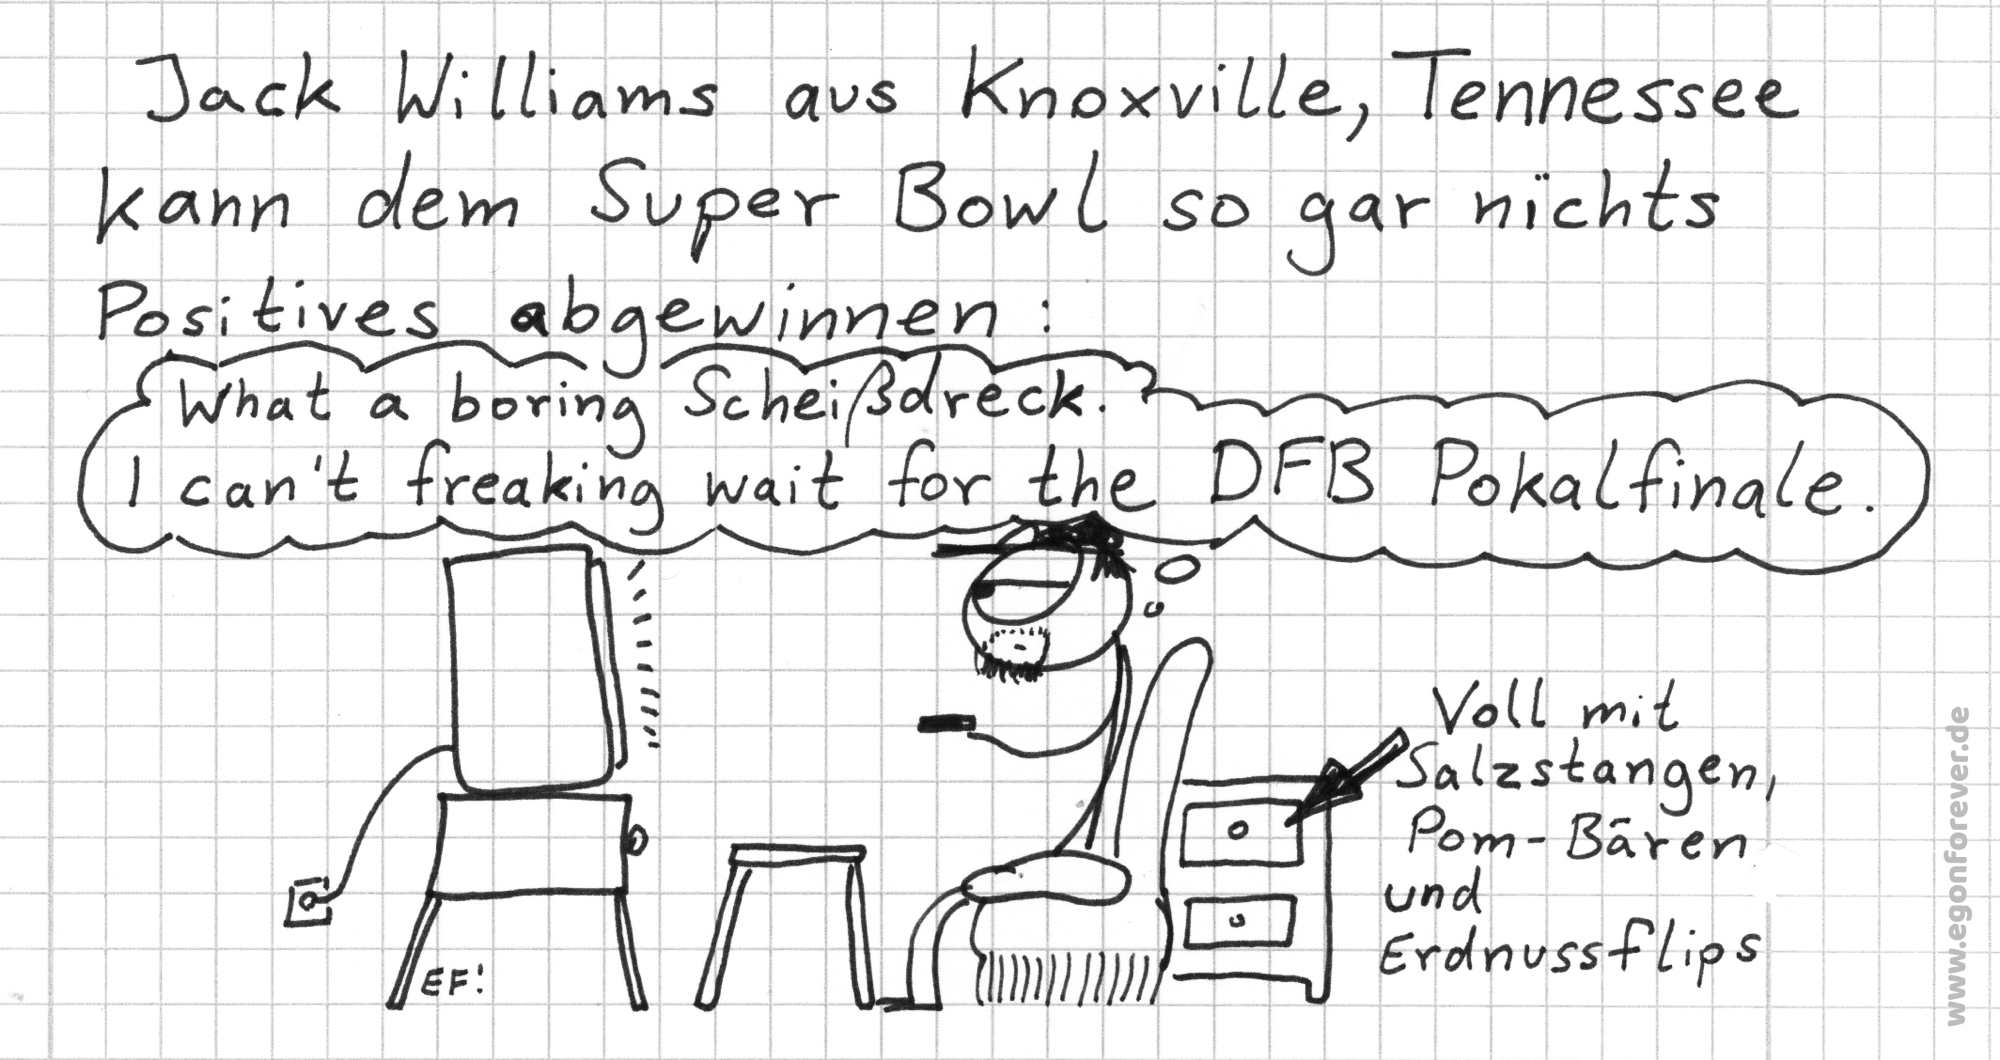 Jack Williams aus Knoxville, Tennessee
kann dem Super Bowl so gar nichts
Positives abgewinnen:
What a boring Scheißdreck.
I can't freaking wait for the DFB Pokalfinale.
Voll mit
Salzstangen,
Pom-Bären
und
Erdnussflips
EF!
www.egonforever.de